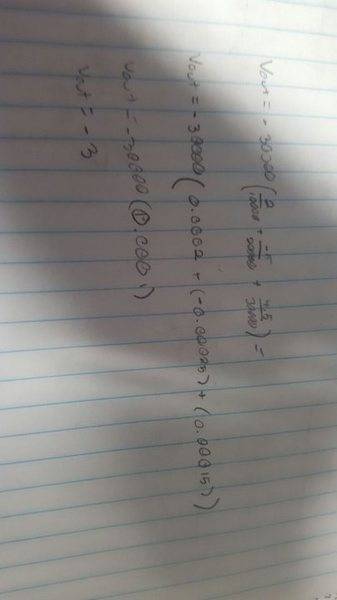 Vout = - 30000 (2/10000 + -5/20000 + 4.5/30000) =
Vout = - 30000 (0.0002 + (-0.00025) + (0.00015))
Vout = -30000 (0.0001)
Vout = - 3